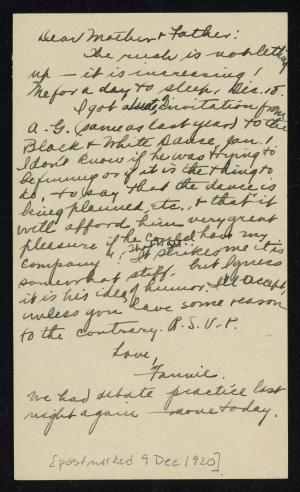 Dear Mother & Father:
The rush is not letting
up — it is increasing!
Me for a day to sleep, Dec. 18.
I got an invitation from
A. G. (same as last year) to the
Black & White Dance, Jan. 1.
I don't know if he was trying to
be funny or if it is the thing to
do, to say that the dance is
being planned, etc., & that it
will afford him very great
pleasure if he could have my
company. It strikes me it is
somewhat stiff, but I guess
it is his idea of humor. I'll accept,
unless you have some reason
to the contrary. R.S.V.P.
Love,
Fannie.
We had debate practice last
night again — none today.
[postmarked 9 Dec 1920]